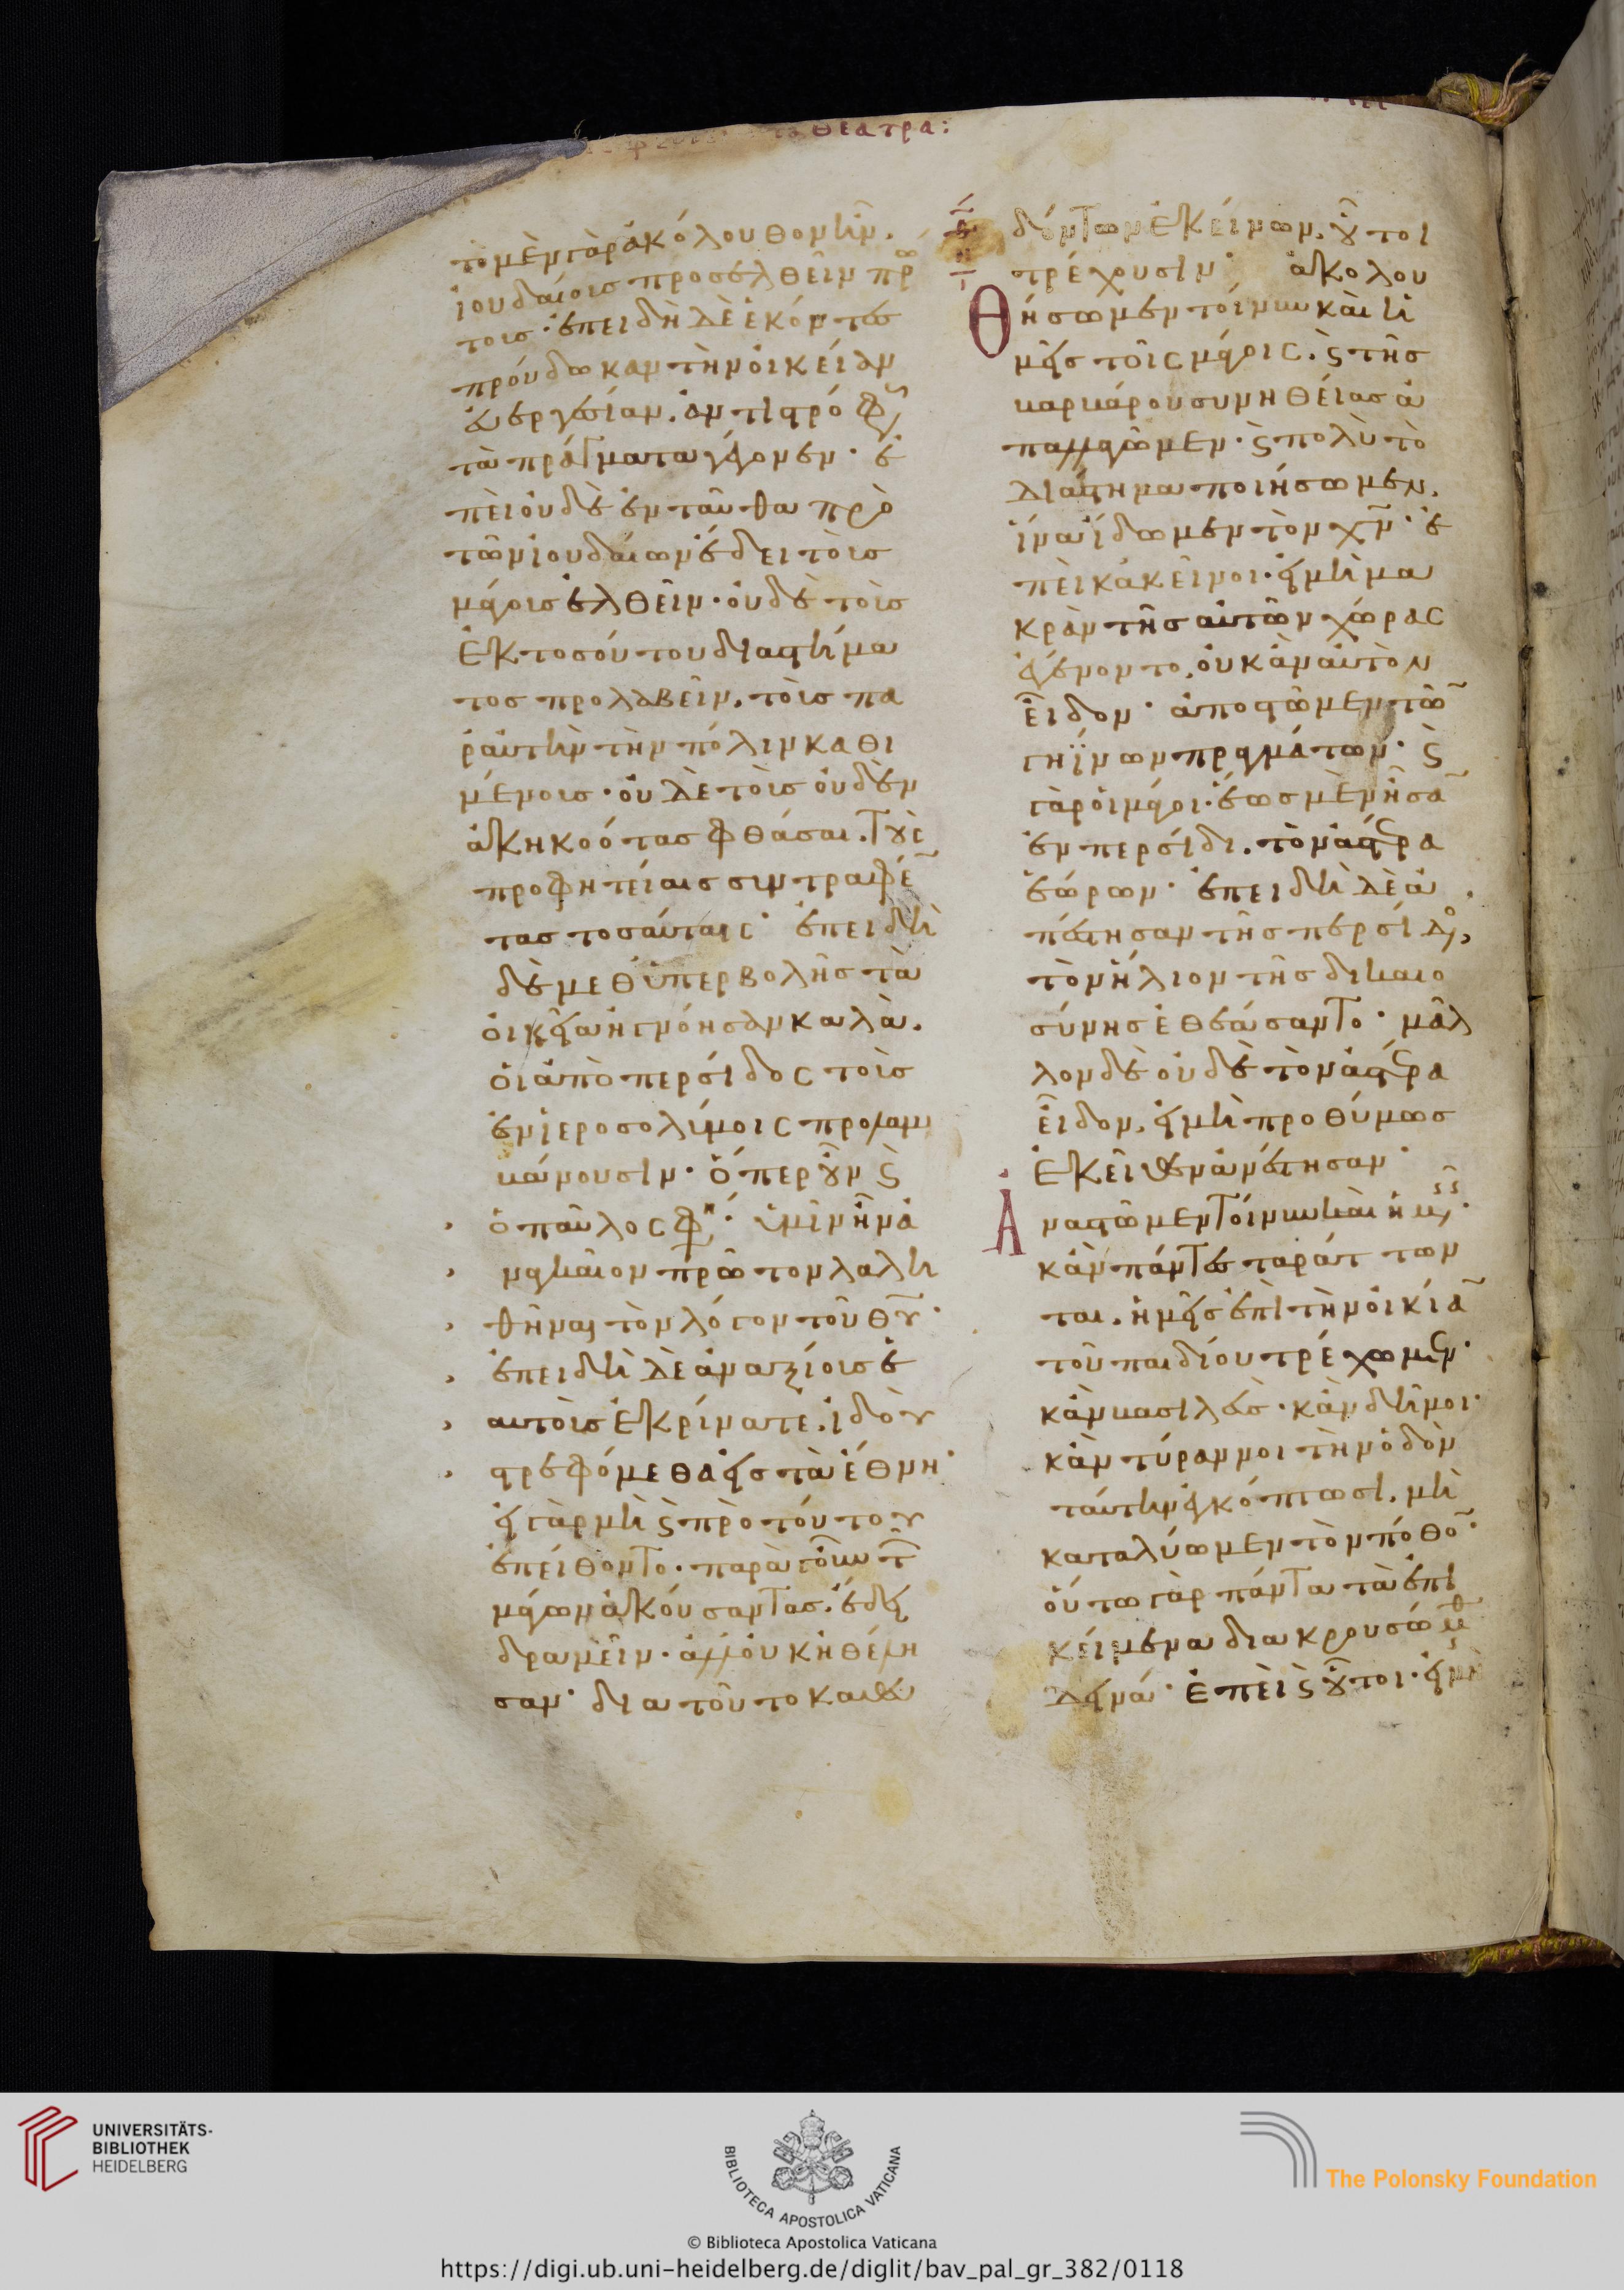 τὰ θέατρα:
τὸ μὲν γὰρ ἀκόλουθον ἦν.
ἰουδαίοις προσελθεῖν πρώ
τοις· ἐπειδὴ δὲ ἑκόντες
προύδωκαν τὴν οἰκείαν
εὐεργεσίαν. ἀντίστροφ
τὰ πράγματα γέγονεν· ἐ
πεὶ οὐδὲ ἐνταῦθα πρὸ
τῶν ἰουδαίων ἔδει τοὺς
μάγους ἐλθεῖν· οὐδὲ τοὺς
ἐκ τοσούτου διαστήμα
τος προλαβεῖν. τοὺς πα
ρ' αὐτὴν τὴν πόλιν καθι
μένους· οὐδὲ τοὺς οὐδὲν
ἀκηκοότας φθάσαι. τοὺς
προφητείαις συντραφέν
τας τοσαύταις· ἐπειδὴ
δὲ μεθ' ὑπερβολῆς τὰ
οἰκεῖα ἠγνόησαν καλὰ.
οἱ ἀπὸ περσίδος τοὺς
ἐν ἱεροσολύμοις προλαμ
βάνουσιν· ὅπερ οὖν καὶ
ὁ παῦλος φησιν· ὑμῖν ἦν ἀ
ναγκαῖον πρῶτον λαλη
θῆναι τὸν λόγον τοῦ θυ·
ἐπειδὴ δὲ ἀναξίους ἑ
αυτοὺς ἐκρίνατε. ἰδοὺ
στρεφόμεθα εἰς τὰ ἔθνη·
εἰ γὰρ μὴ καὶ πρὸ τούτου
ἐπείθοντο. παρὰ γοῦν τῶν
μάγων ἀκούσαντας. ἔδει
δραμεῖν· ἀλλ' οὐκ ἠθέλη
σαν· διὰ τοῦτο καθευ
δόντων ἐκείνων. οὗτοι
τρέχουσιν· ἀκολου
Θήσωμεν τοίνυν καὶ ἡ
μεῖς τοῖς μάγοις. καὶ τῆς
βαρβάρου συνηθείας ἀ
παλλαγῶμεν· καὶ πολὺ τὸ
διάστημα ποιήσωμεν.
ἵνα ἴδωμεν τὸν χν· ἐ
πεὶ κἀκεῖνοι· εἰ μὴ μα
κρὰν τῆς αὐτῶν χώρας
ἐγένοντο. οὐκ ἂν αὐτὸν
εἶδον· ἀποστῶμεν τῶν
γηΐνων πραγμάτων· καὶ
γὰρ οἱ μάγοι. ἕως μὲν ἦσαν
ἐν περσίδι. τὸν ἀστέρα
ἑώρων· ἐπειδὴ δὲ ἀ
πέστησαν τῆς περσίδος,
τὸν ἥλιον τῆς δικαιο
σύνης ἐθεάσαντο· μᾶλ
λον δὲ οὐδὲ τὸν ἀστέρα
εἶδον. εἰ μὴ προθύμως
ἐκεῖθεν ἀνέστησαν·
Ἀναστῶμεν τοίνυν καὶ ἡμεῖς·
κἂν πάντες ταράττων
ται. ἡμεῖς ἐπὶ τὴν οἰκίαν
τοῦ παιδίου τρέχωμεν·
κἂν βασιλεῖς· κἂν δῆμοι·
κἂν τύραννοι τὴν ὁδὸν
ταύτην ἐκκόπτωσι. μὴ
καταλύωμεν τὸν πόθον·
οὕτω γὰρ πάντα τὰ ἐπι
κείμενα διακρουσώμεθα
δεινά· ἐπεὶ καὶ οὗτοι· εἰ μὴ
UNIVERSITÄTS-
BIBLIOTHEK
HEIDELBERG
BIBLIOTECA APOSTOLICA VATICANA
The Polonsky Foundation
© Biblioteca Apostolica Vaticana
https://digi.ub.uni-heidelberg.de/diglit/bav_pal_gr_382/0118